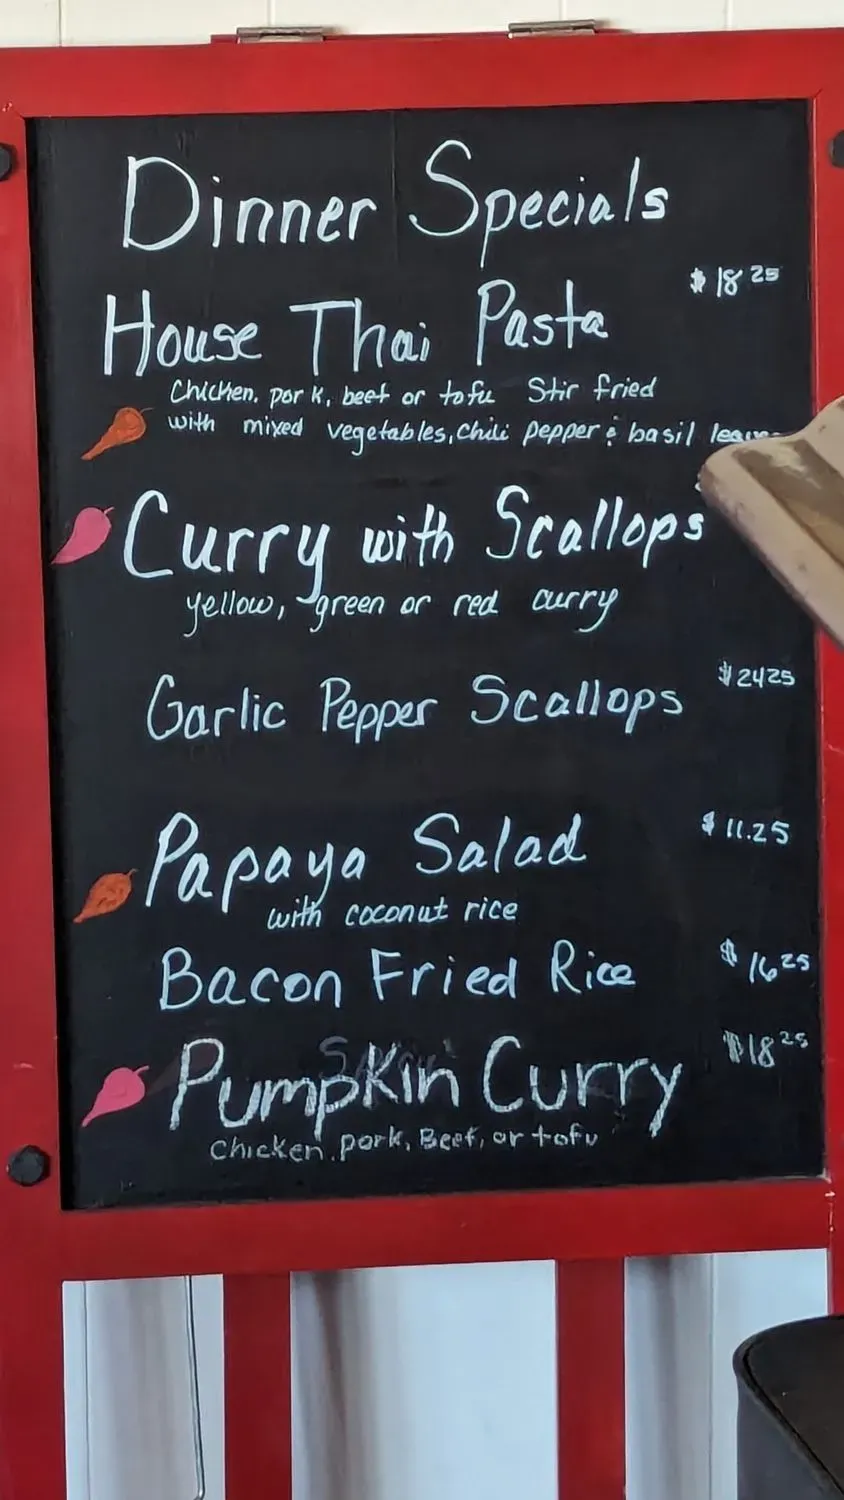 Dinner Specials
$18.25
House Thai Pasta
Chicken, pork, beef or tofu Stir fried
with mixed vegetables, Chili pepper & basil
Curry with Scallops
yellow, green or red curry
Garlic Pepper Scallops $2425
Papaya Salad $11.25
with coconut rice
Bacon Fried Rice $16 25
Pumpkin Curry $18 25
Chicken, pork, Beef, or tofu